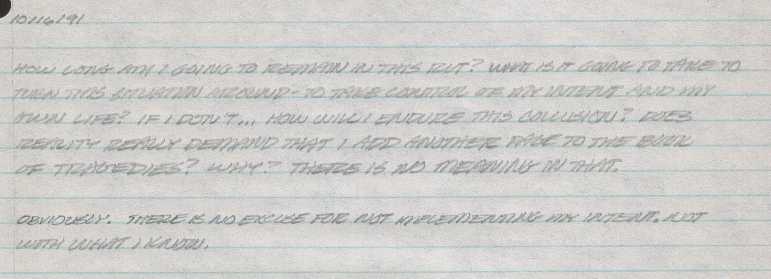 10/16/91
HOW LONG AM I GOING TO REMAIN IN THIS RUT? WHAT IS IT GOING TO TAKE TO
TURN THIS SITUATION AROUND - TO TAKE CONTROL OF MY INTENT AND MY
OWN LIFE? IF I DON'T... HOW WILL I ENDURE THIS CONCLUSION? DOES
REALITY REALLY DEMAND THAT I ADD ANOTHER PAGE TO THE BOOK
OF TRAGEDIES? WHY? THERE IS NO MEANING IN THAT.
OBVIOUSLY. THERE IS NO EXCUSE FOR NOT IMPLEMENTING MY INTENT. NOT
WITH WHAT I KNOW.